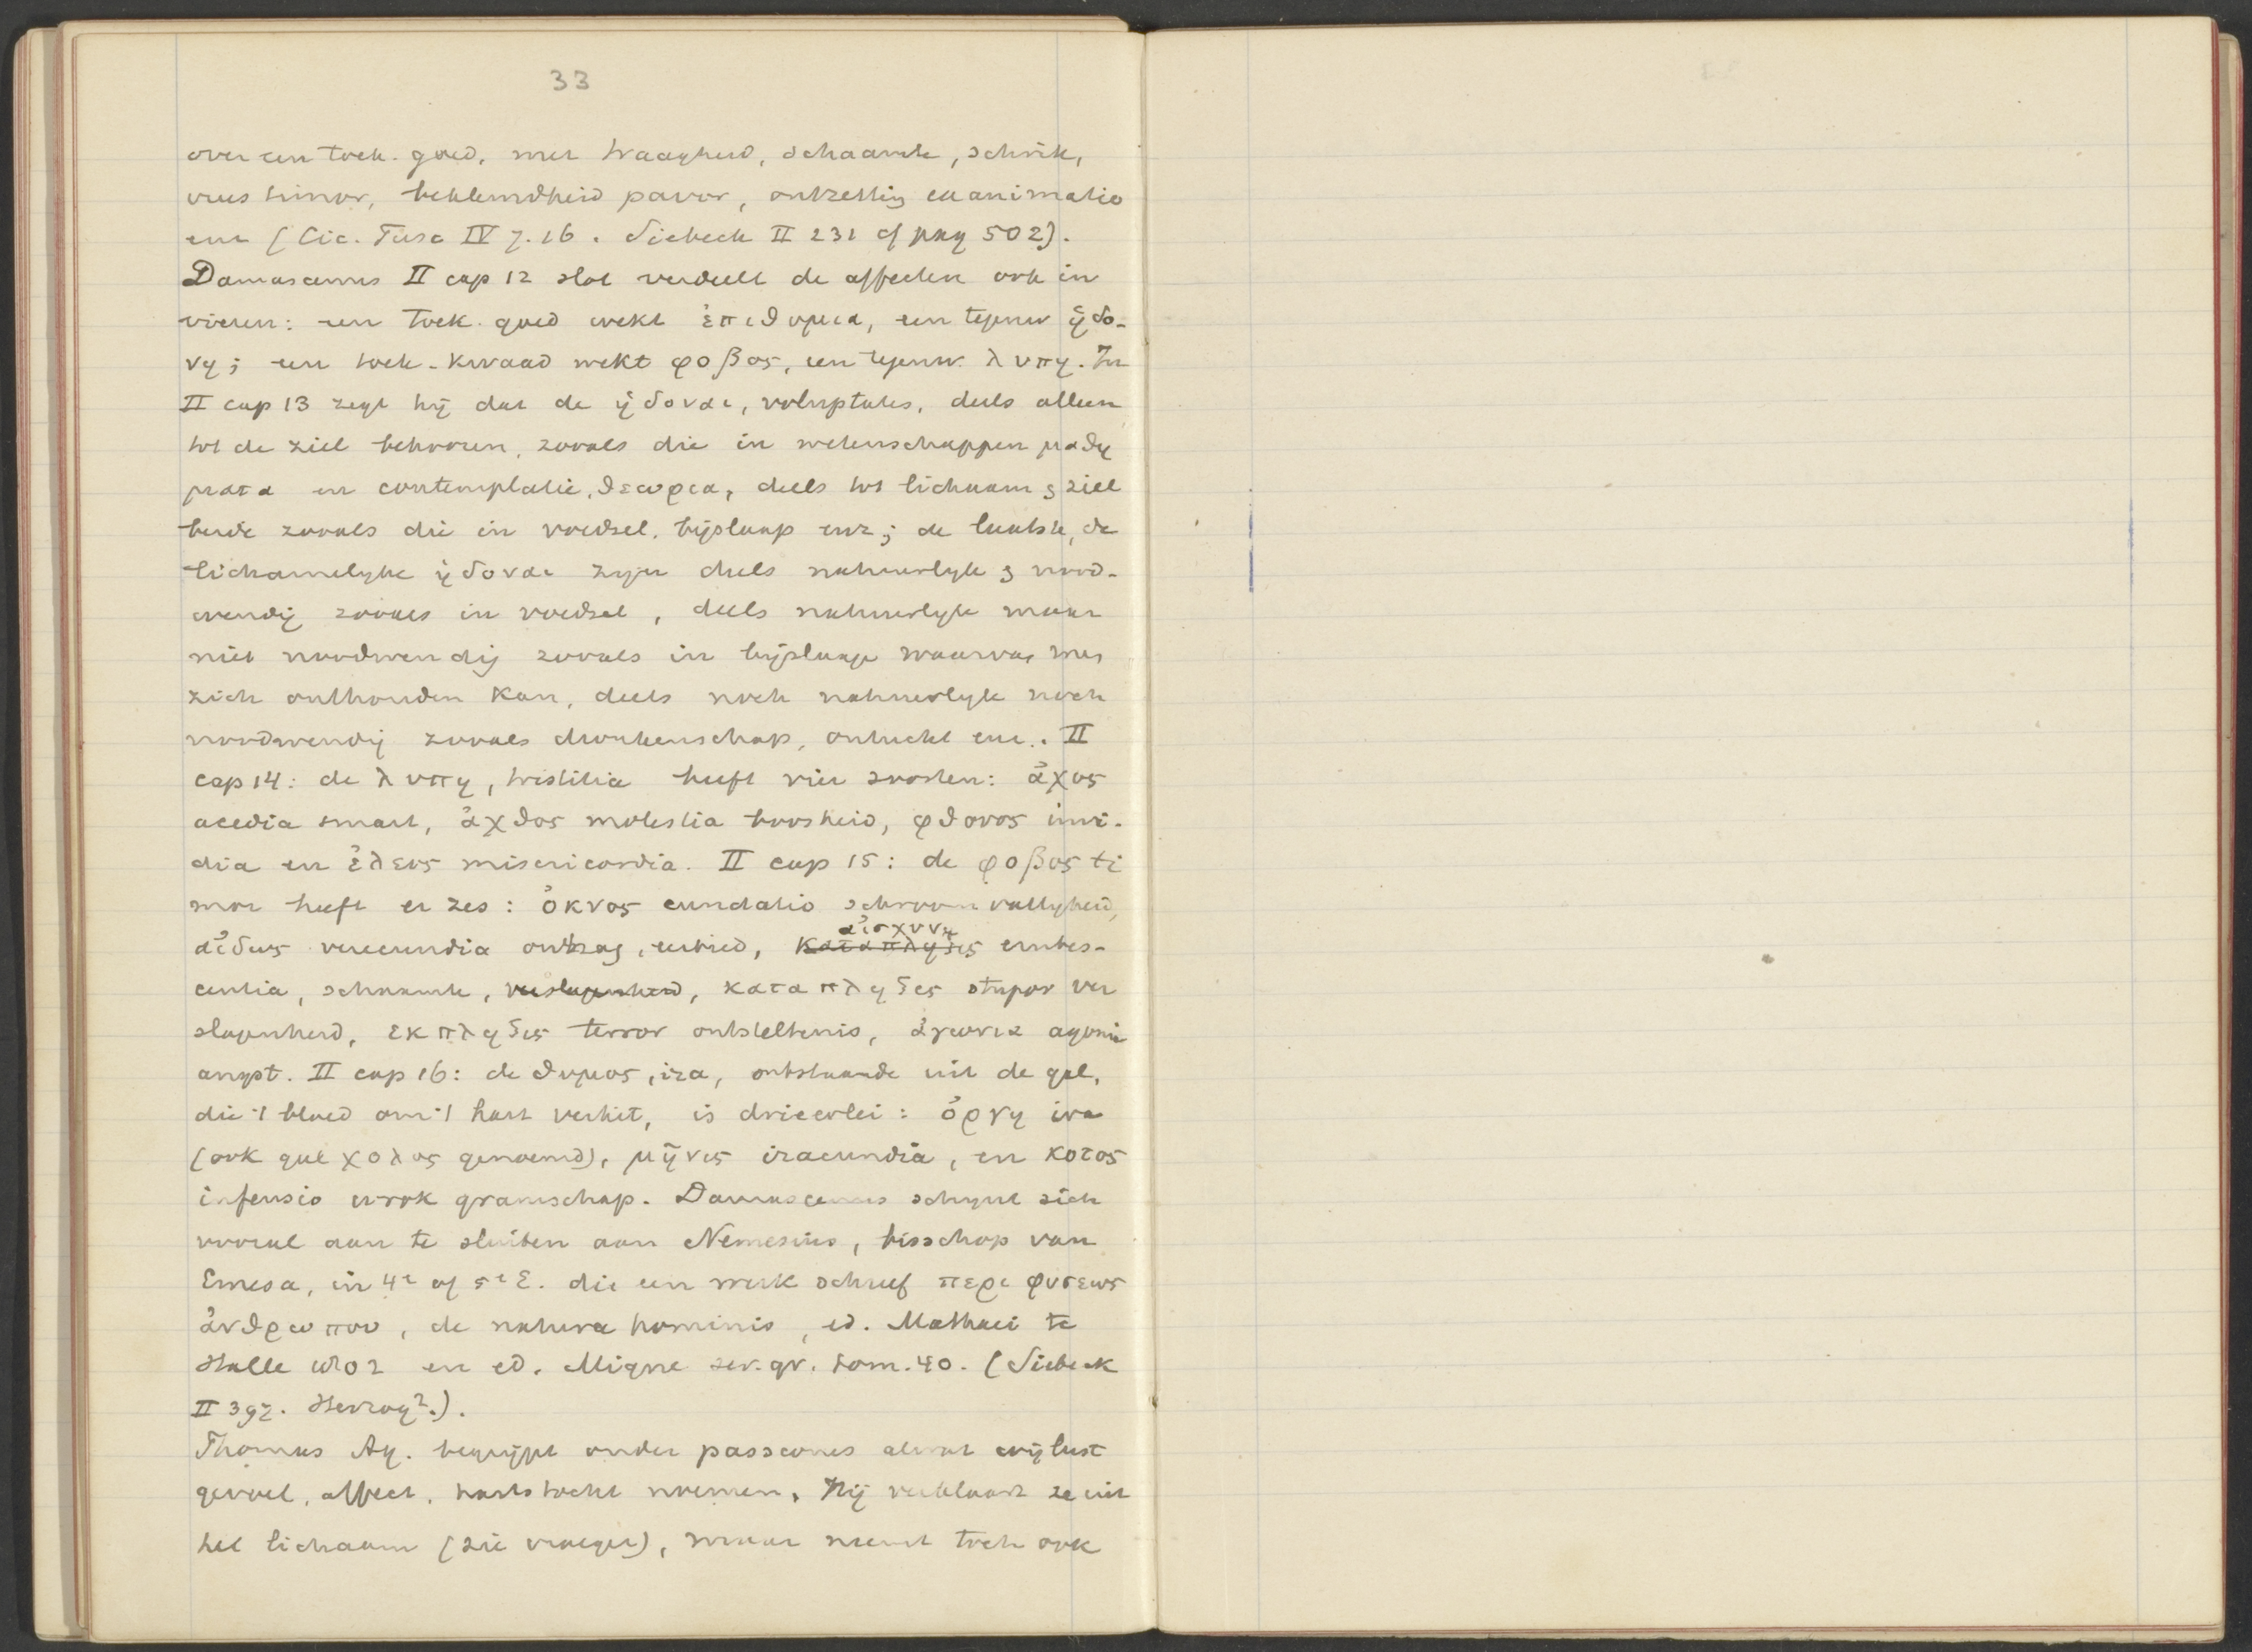 33
over een toek. goed, met traagheid, schaamte, schrik,
vrees timor, beklemdheid pavor, ontzetting exanimatio
enz (Cic. Tusc IV 7. 16. Siebeck II 231 cf pag 502).
Damascenus II cap 12 slot verdeelt de affecten ook in
vieren: een toek. goed wekt ἐπιθυμια, een tegenw ἡδο-
νη; een toek. kwaad wekt φοβος, een tegenw. λυπη. In
II cap 13 zegt hij dat de ἡδοναι, voluptates, deels alleen
tot de ziel behooren, zooals die in wetenschappen μαθη
ματα en contemplatie, θεωρια, deels tot lichaam & ziel
beide zooals die in voedsel, bijslaap enz; de laatste, de
lichamelyke ἡδοναι zyn deels natuurlyk & nood-
wendig zooals in voedsel, deels natuurlyk maar
niet noodwendig zooals in bijslaap waarvan men
zich onthouden kan, deels noch natuurlyk noch
noodwendig zooals dronkenschap, ontucht enz. II
cap 14: de λυπη, tristitia heeft vier soorten: ἀχος
acedia smart, ἀχθος molestia boosheid, φθονος invi-
dia en ἐλεος misericordia. II cap 15: de φοβος ti
mor heeft er zes: ὀκνος cunctatio schroomvalligheid,
αἰδως verecundia ontzag, eerbied, καταπληξις αἰσχυνη erubes-
centia, schaamte, verslagenheid, καταπληξις stupor ver
slagenheid, ἐκπληξις terror ontsteltenis, ἀγωνια agonia
angst. II cap 16: de θυμος, ira, ontstaande uit de gal,
die 't bloed om 't hart verhit, is drieerlei: ὀργη ira
(ook gal χολος genoemd), μῆνις iracundia, en κοτος
infensio wrok gramschap. Damascenus schynt zich
vooral aan te sluiten aan Nemesius, bisschop van
Emesa, in 4e of 5e E. die een werk schreef περι φυσεως
ἀνθρωπου, de natura hominis, ed. Mathaei te
Halle 1802 en ed. Migne ser. gr. tom. 40. (Siebeck
II 397. Herzog².).
Thomas Aq. begrijpt onder passiones alwat wij lust
gevoel, affect, hartstocht noemen. Hij verklaart ze uit
het lichaam (zie vroeger), maar neemt toch ook